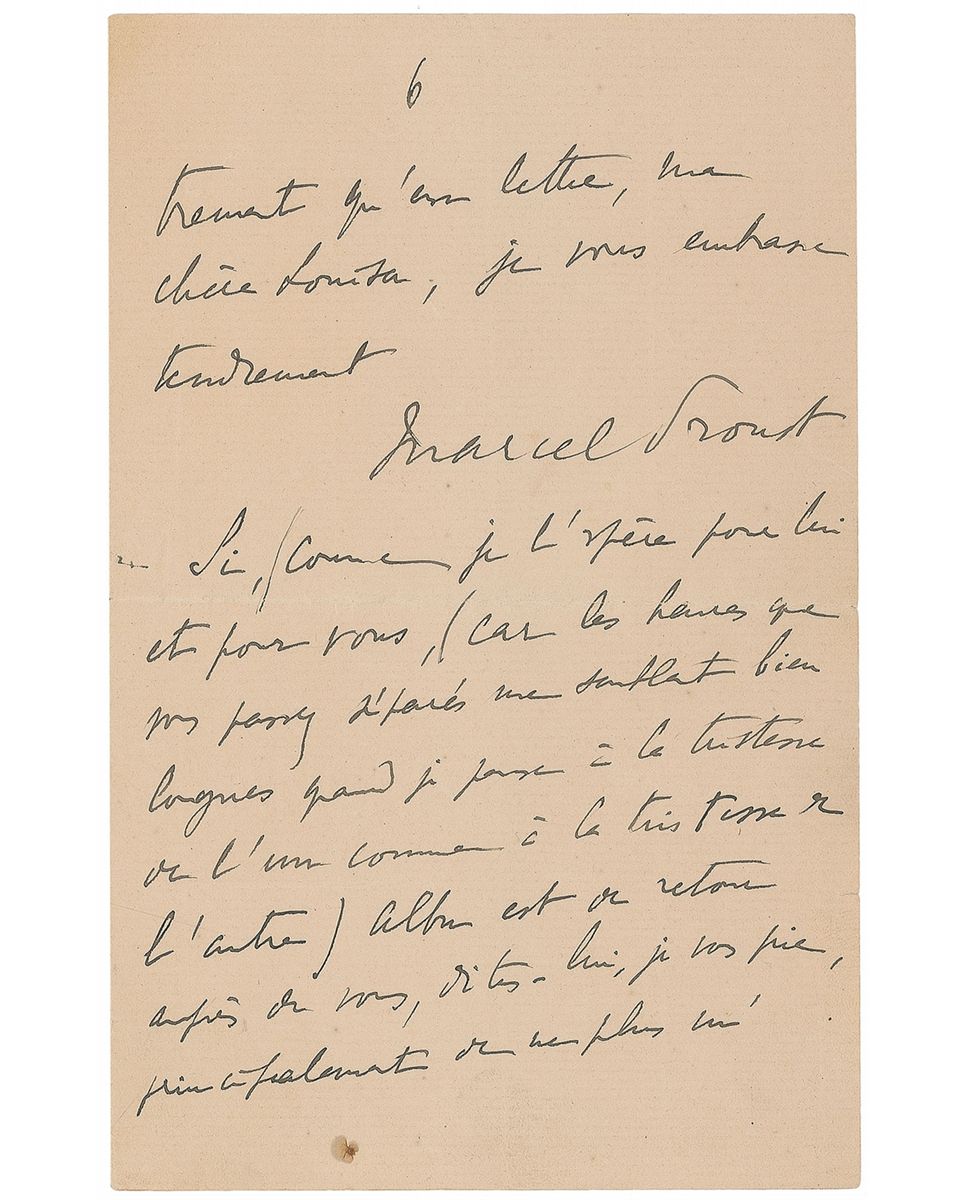 6
trement qu'en lettre, ma
chère Louisa, je vous embrasse
tendrement
Marcel Proust
Si, (comme je l'espère pour lui
et pour vous, (car les heures que
vous passez séparés me semblent bien
longues quand je pense à la tristesse
de l'un comme à la tristesse de
l'autre) Albu est de retour
auprès de vous, dites-lui, je vous prie,
principalement de ne plus m'